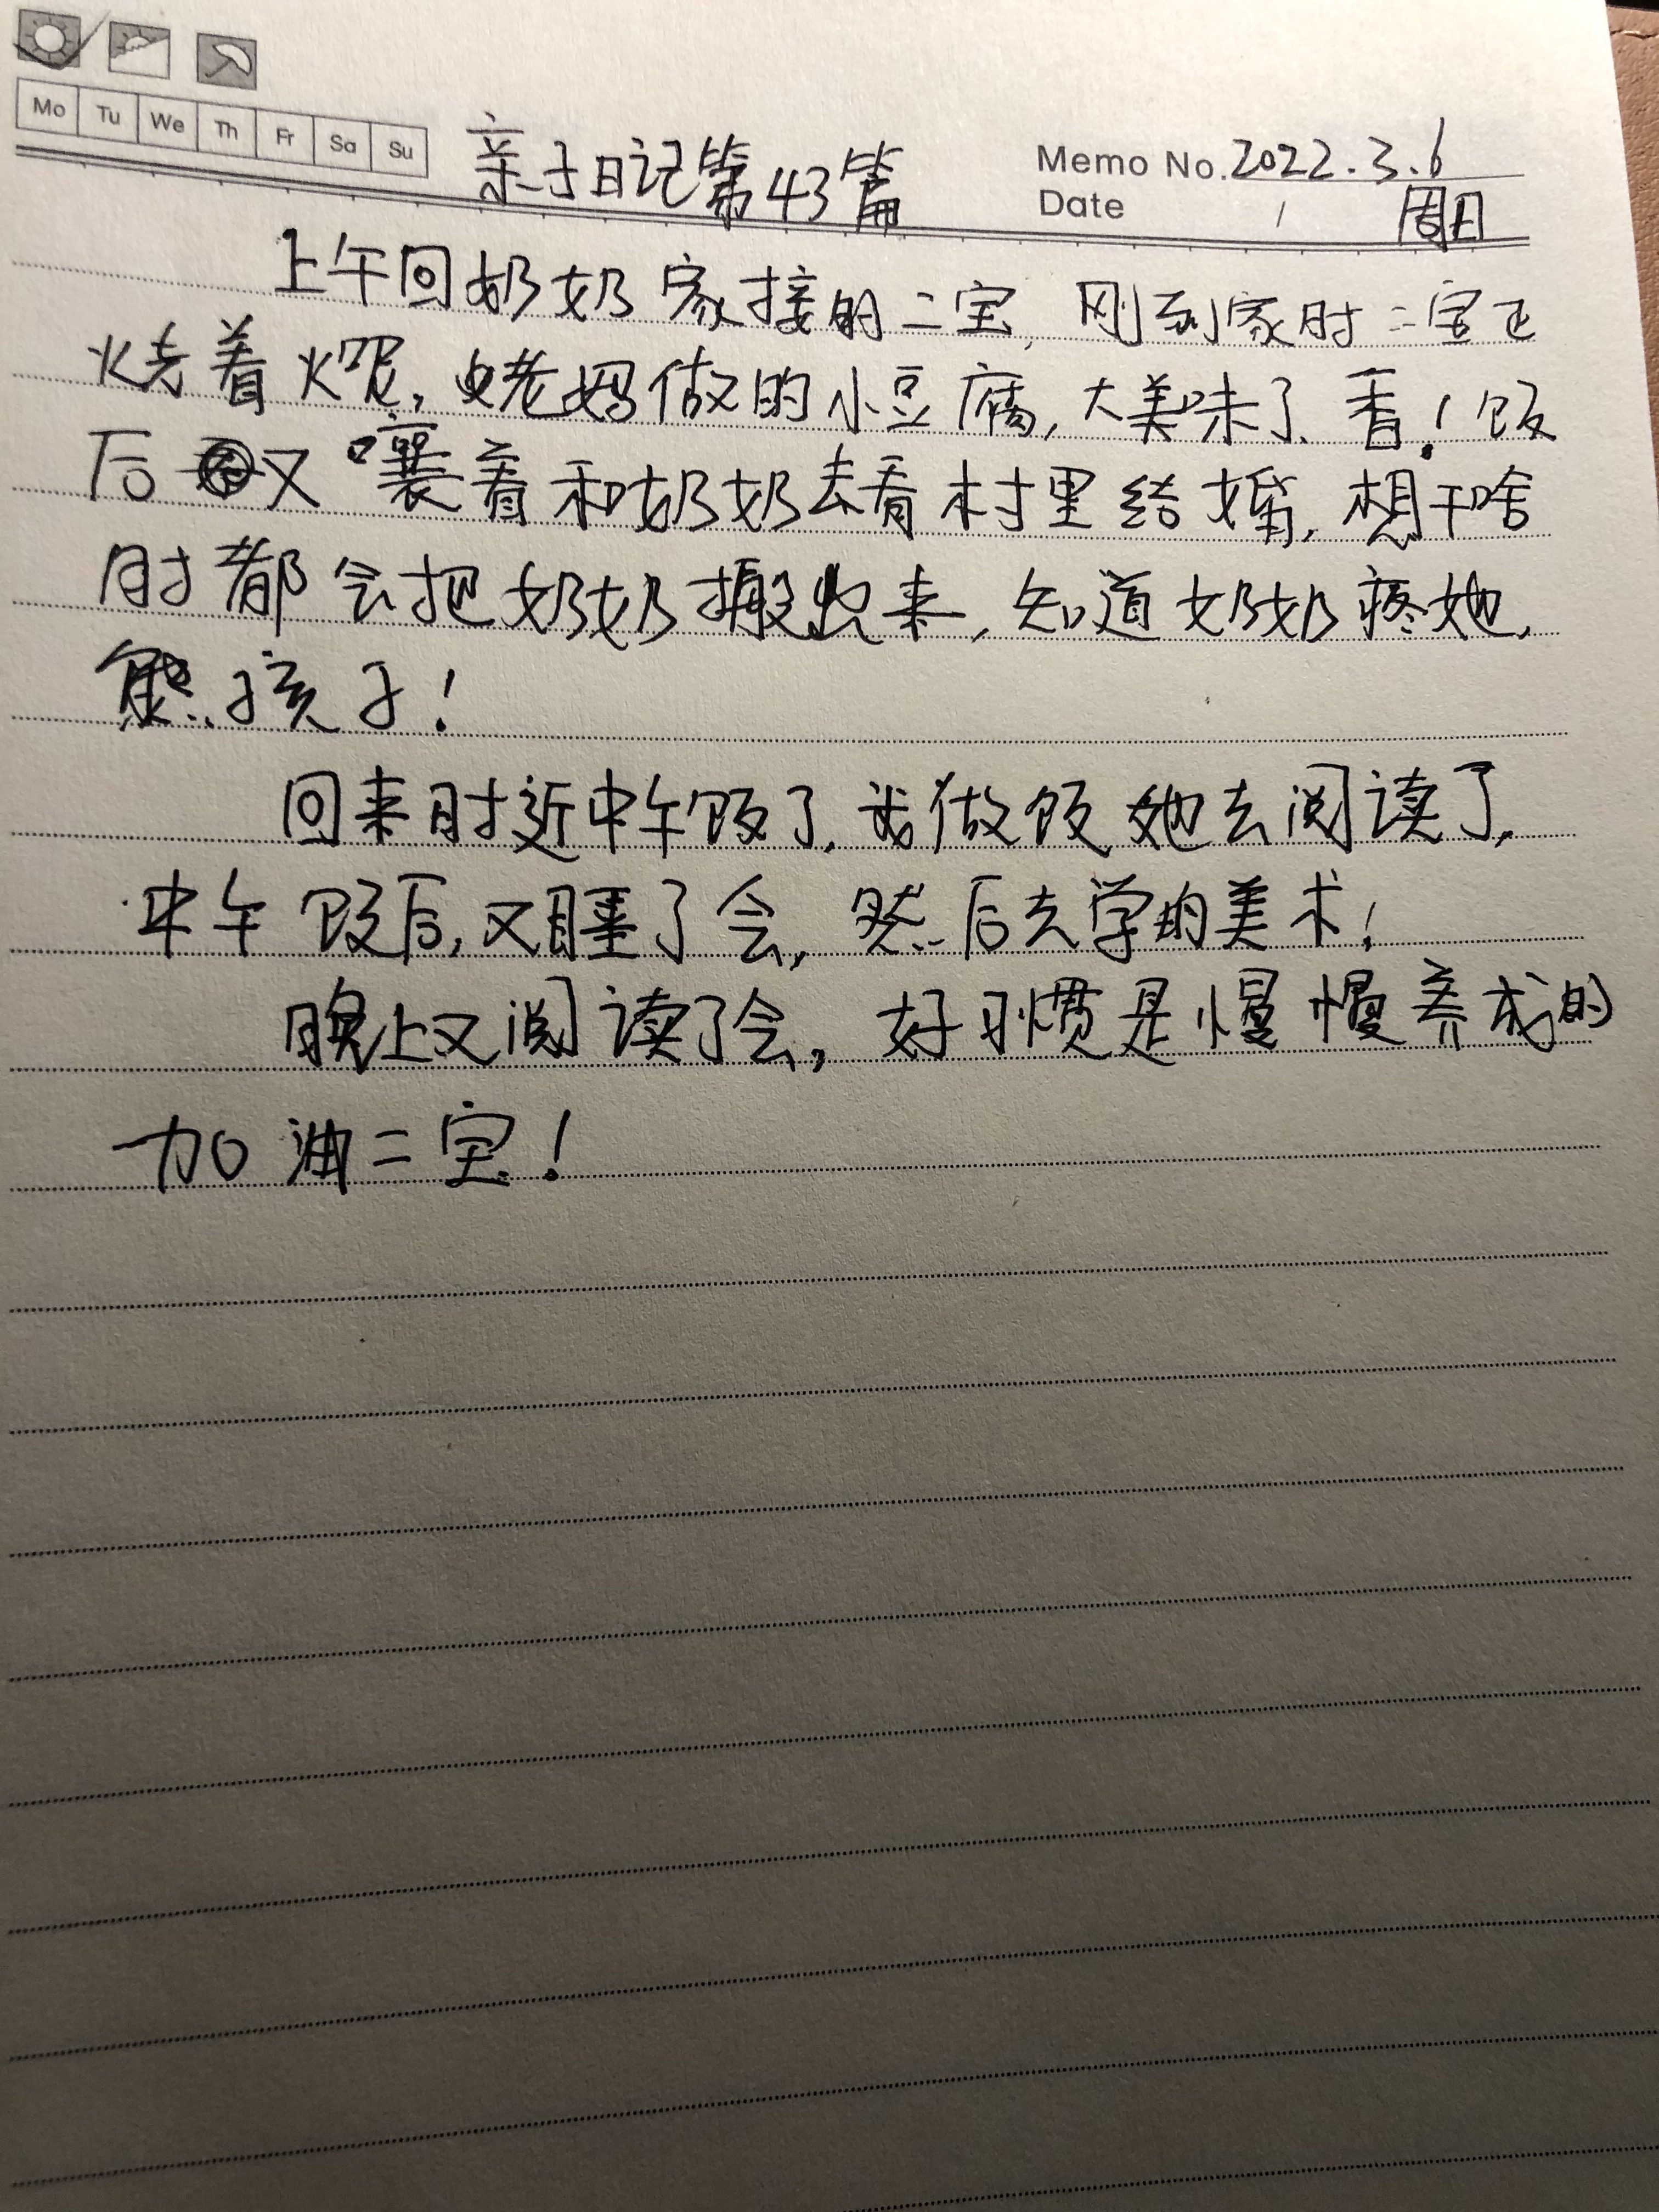 Mo Tu We Th Fr Sa Su
亲子日记第43篇
Memo No. 2022.3.6
Date / 周日
上午回奶奶家接的二宝,刚到家时二宝正
烧着火呢,姥姥做的小豆腐,大美味了、香!饭
后又嚷着和奶奶去看村里结婚,想干啥
时都会把奶奶搬出来,知道奶奶疼她,
熊孩子!
回来时近中午饭了,我做饭她去阅读了,
中午饭后,又睡了会,然后去学的美术!
晚上又阅读了会,好习惯是慢慢养成的
加油二宝!